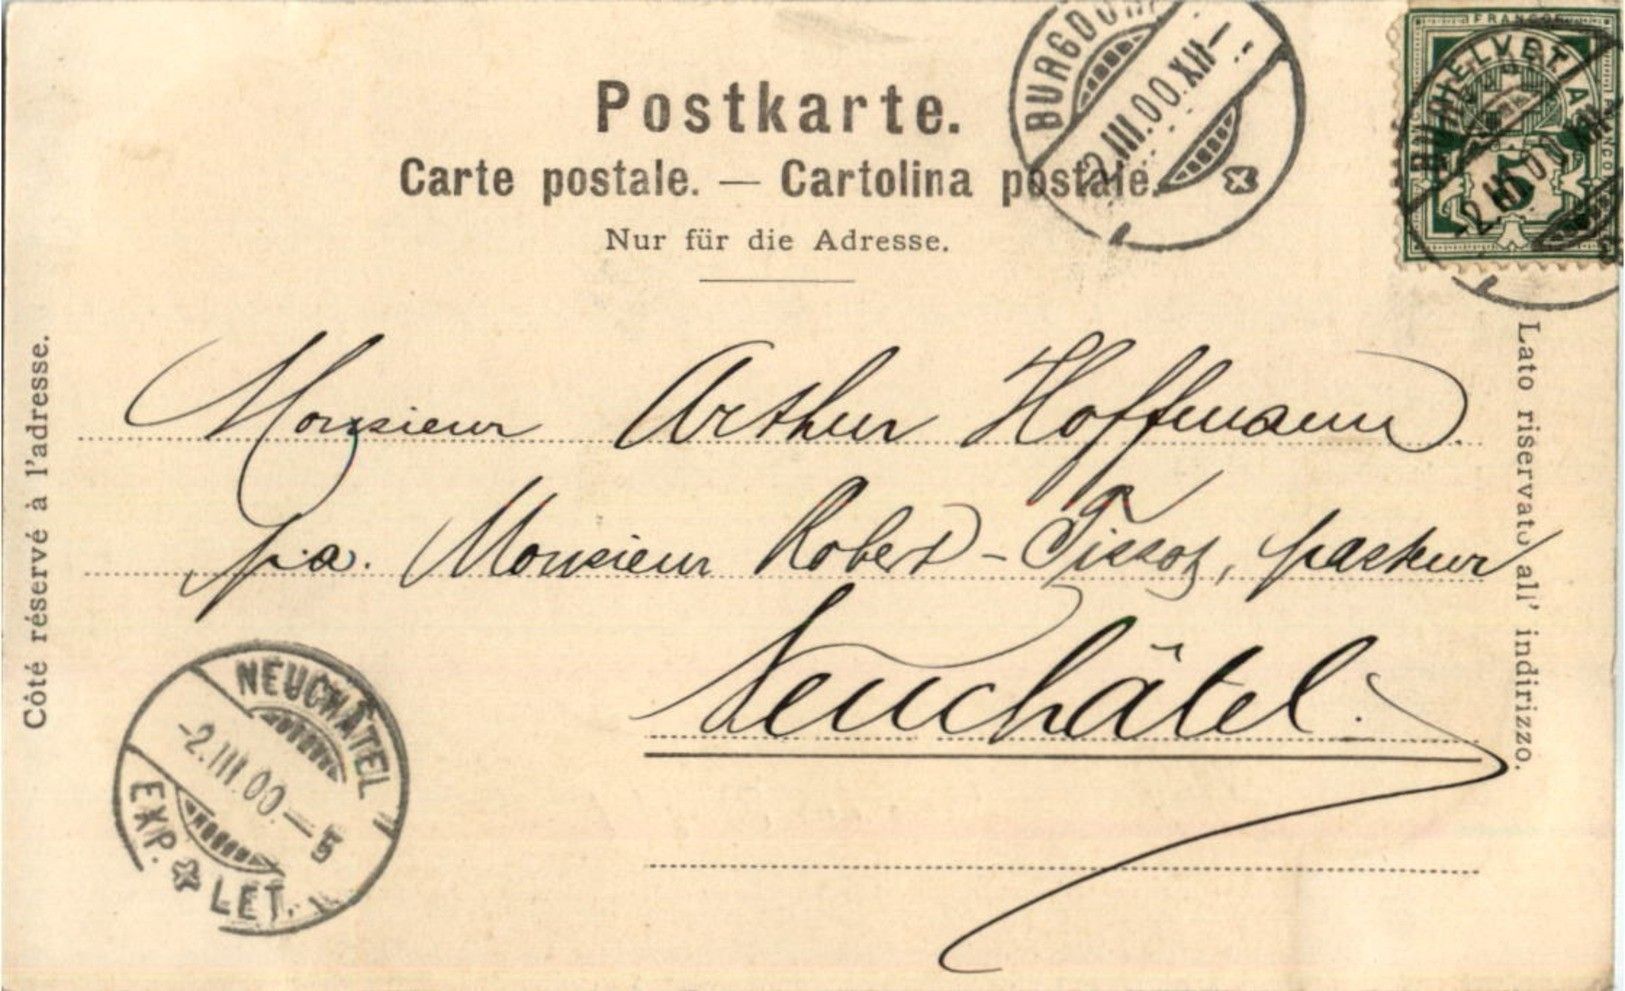 Postkarte.
Carte postale. — Cartolina postale.
Nur für die Adresse.
BURGDORF
-2.III.00.XII-
FRANCO
HELVETIA
5
-2.III.00.XII-
Côté réservé à l'adresse.
Monsieur Arthur Hoffmann.
p.a. Monsieur Robert-Tissot, pasteur
Neuchâtel.
Lato riservato all' indirizzo.
NEUCHÂTEL
-2.III.00.-5
EXP. LET.